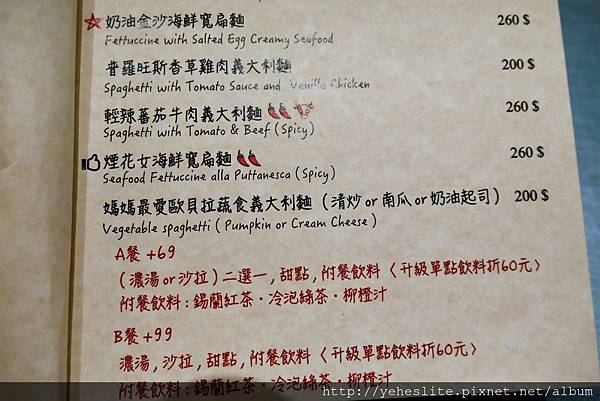 奶油金沙海鮮寬扁麵 260 $
Fettuccine with Salted Egg Creamy Seafood
普羅旺斯香草雞肉義大利麵 200 $
Spaghetti with Tomato Sauce and Vanilla Chicken
輕辣蕃茄牛肉義大利麵 260 $
Spaghetti with Tomato & Beef (Spicy)
煙花女海鮮寬扁麵 260 $
Seafood Fettuccine alla Puttanesca (Spicy)
媽媽最愛歐貝拉蔬食義大利麵 (清炒 or 南瓜 or 奶油起司) 200 $
Vegetable spaghetti ( Pumpkin or Cream Cheese )
A餐 +69
(濃湯 or 沙拉) 二選一, 甜點, 附餐飲料〈升級單點飲料折60元〉
附餐飲料:錫蘭紅茶・冷泡綠茶・柳橙汁
B餐 +99
濃湯, 沙拉, 甜點, 附餐飲料〈升級單點飲料折60元〉
附餐飲料:錫蘭紅茶・冷泡綠茶・柳橙汁
http://yeheslite.pixnet.net/album